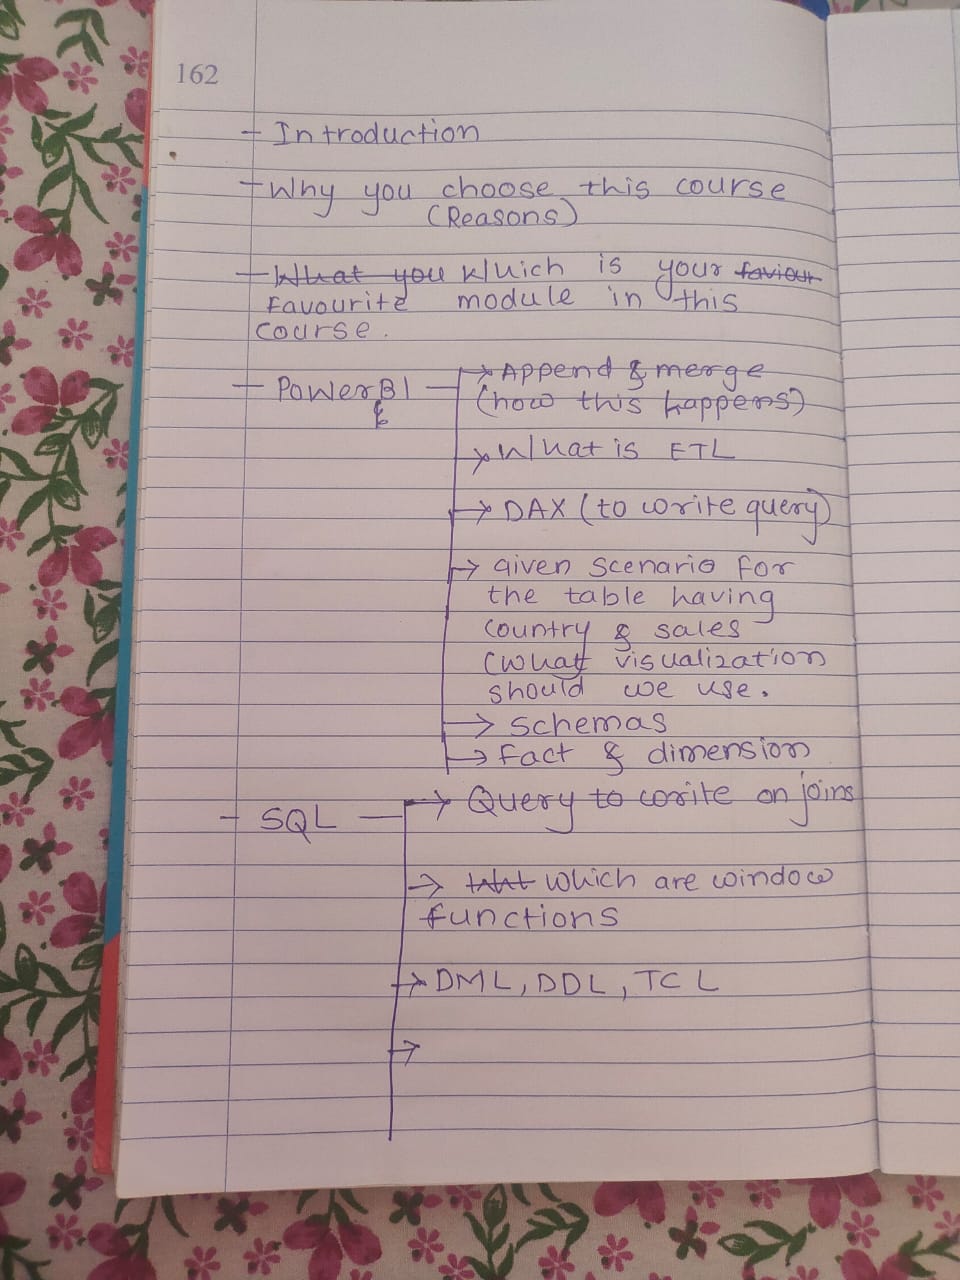 162
- Introduction
- Why you choose this course
(Reasons)
- What you Which is your faviour
Favourite module in this
course.
- PowerBI → Append & merge
(how this happens)
→ What is ETL
→ DAX (to write query)
→ given scenario for
the table having
country & sales
(what visualization
should we use.
→ schemas
→ fact & dimension
- SQL → Query to write on joins
→ which are window
functions
→ DML, DDL, TCL
→